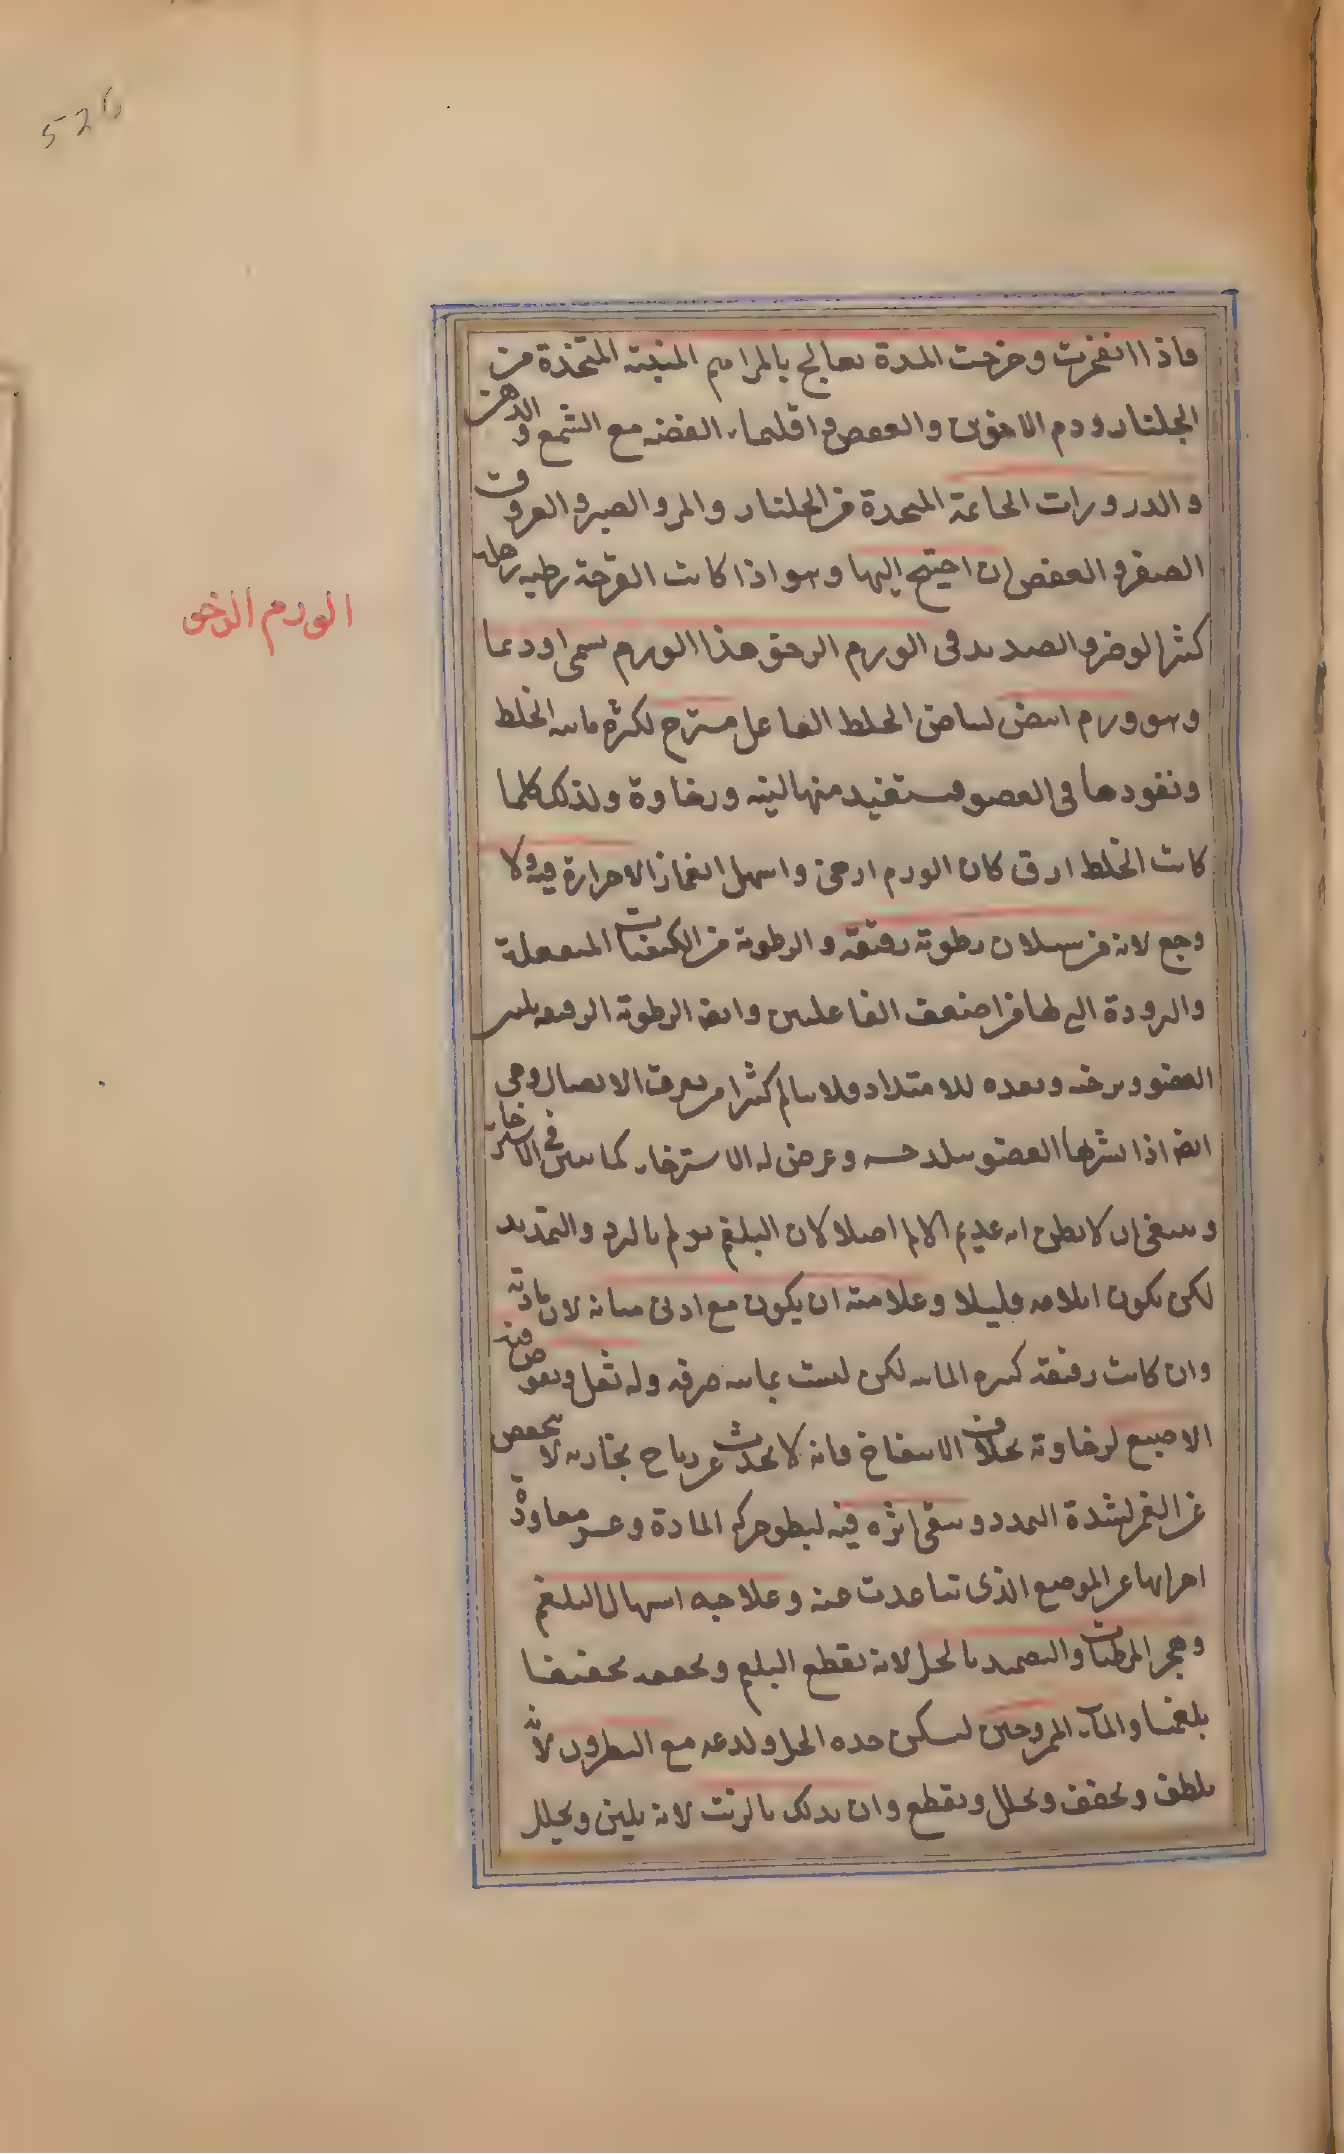 526
فاذا انفجرت وخرجت المدة يعالج بالمراهم المنبتة المتخذة من
الجلنار ودم الاخوين والعفص واقليما الفضة مع الشمع والدهن
والذرورات الخاتمة المتخذة من الجلنار والمر والصبر والعروق
الصفر والعفص ان احتيج اليها وهو اذا كانت القرحة رطبة رهلة
كثيرة الوضر والصديد في الورم الرخو هذا الورم يسمى اوذيما
الورم الرخو
وهو ورم ابيض لبياض الخلط الفاعل مسترخ لكثرة مائية الخلط
ونفوذها في العضو فيستفيد منها لينة ورخاوة ولذلك كلما
كانت الخلط ارق كان الورم ارخى واسهل انغمازا لا حرارة فيه ولا
وجع لانه من سيلان رطوبة رقيقة والرطوبة من الكيفيات المنفعلة
والبرودة التي لها من اضعف الفاعلين وايضا الرطوبة الرقيقة يلين
العضو ويرخيه ويعده للامتداد فلا يتالم كثيرا من تفرق الاتصال وهي
ايضا اذا تشربها العضو تبلد حسه وعرض له الاسترخاء كما تبين في الاسترخاء
وينبغي ان لا يظن انه عديم الالم اصلا لان البلغم يولم بالبرد والتمديد
لكن يكون ايلامه قليلا وعلامته ان يكون مع ادنى متانة لان مادته
وان كانت رقيقة كثيرة المائية لكن ليست بمائية صرفة وله ثقل ويغوص فيه
الاصبع لرخاوته بخلاف الانتفاخ فانه لا يحدث عن رياح بخارية لا ينخفض
عن الغمز لشدة التمدد ويبقى اثره فيه لبطو حركة المادة وعسر معاودة
اجزائها عن الموضع الذي تباعدت عنه وعلاجه اسهال البلغم
وهجر المرطبات والتضميد بالخل لانه يقطع البلغم ويجففه تجفيفا
بليغا والماء الممزوجين لتسكن حدة الخل ولذعه مع النطرون لانه
يلطف ويجفف ويحلل ويقطع وان يدلك بالزيت لانه يلين ويحلل